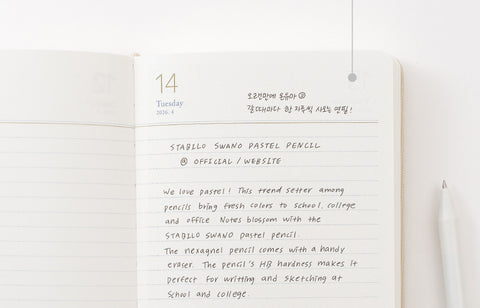 14
Tuesday
2026. 4
갈때마다 한 자루씩 사오는 연필!
STABILO SWANO PASTEL PENCIL
@ OFFICIAL / WEBSITE
We love pastel! This trend setter among
pencils bring fresh colors to school, college
and office Notes blossom with the
STABILO SWANO pastel pencil.
The hexagnel pencil comes with a handy
eraser. The pencil's HB hardness makes it
perfect for writting and sketching at
school and college.